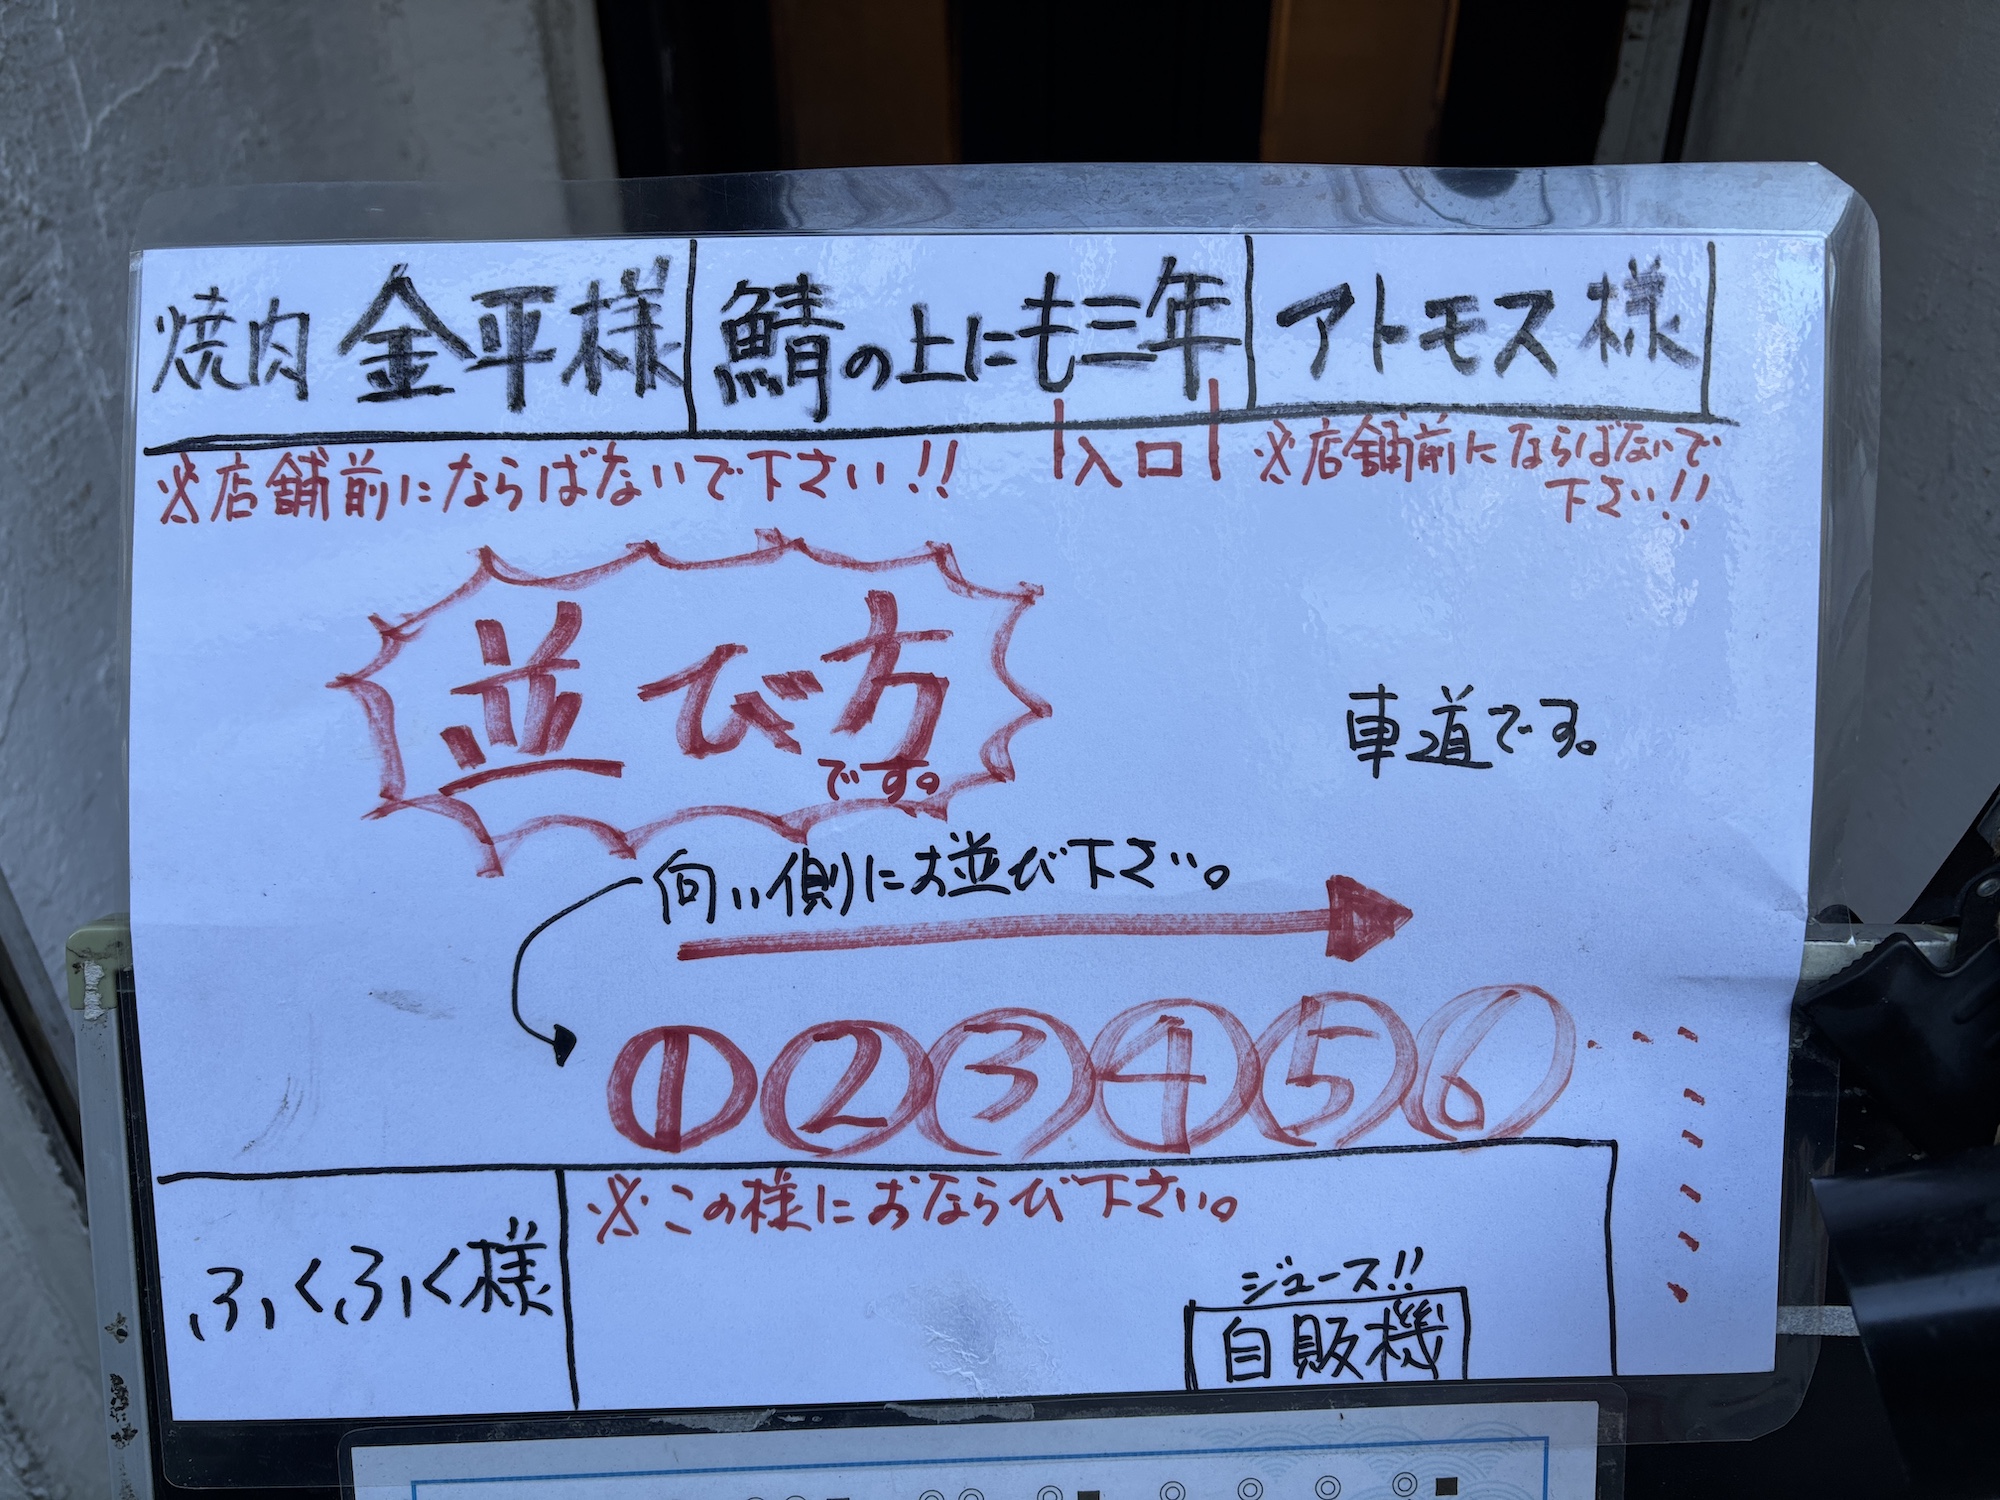 焼肉 金平様 鯖の上にも三年 アトモス様
入口
※店舗前にならばないで下さい!!
※店舗前にならばないで
下さい!!
並び方
です。
車道です。
向い側にお並び下さい。
① ② ③ ④ ⑤ ⑥
※この様におならび下さい。
ふくふく様
ジュース!!
自販機